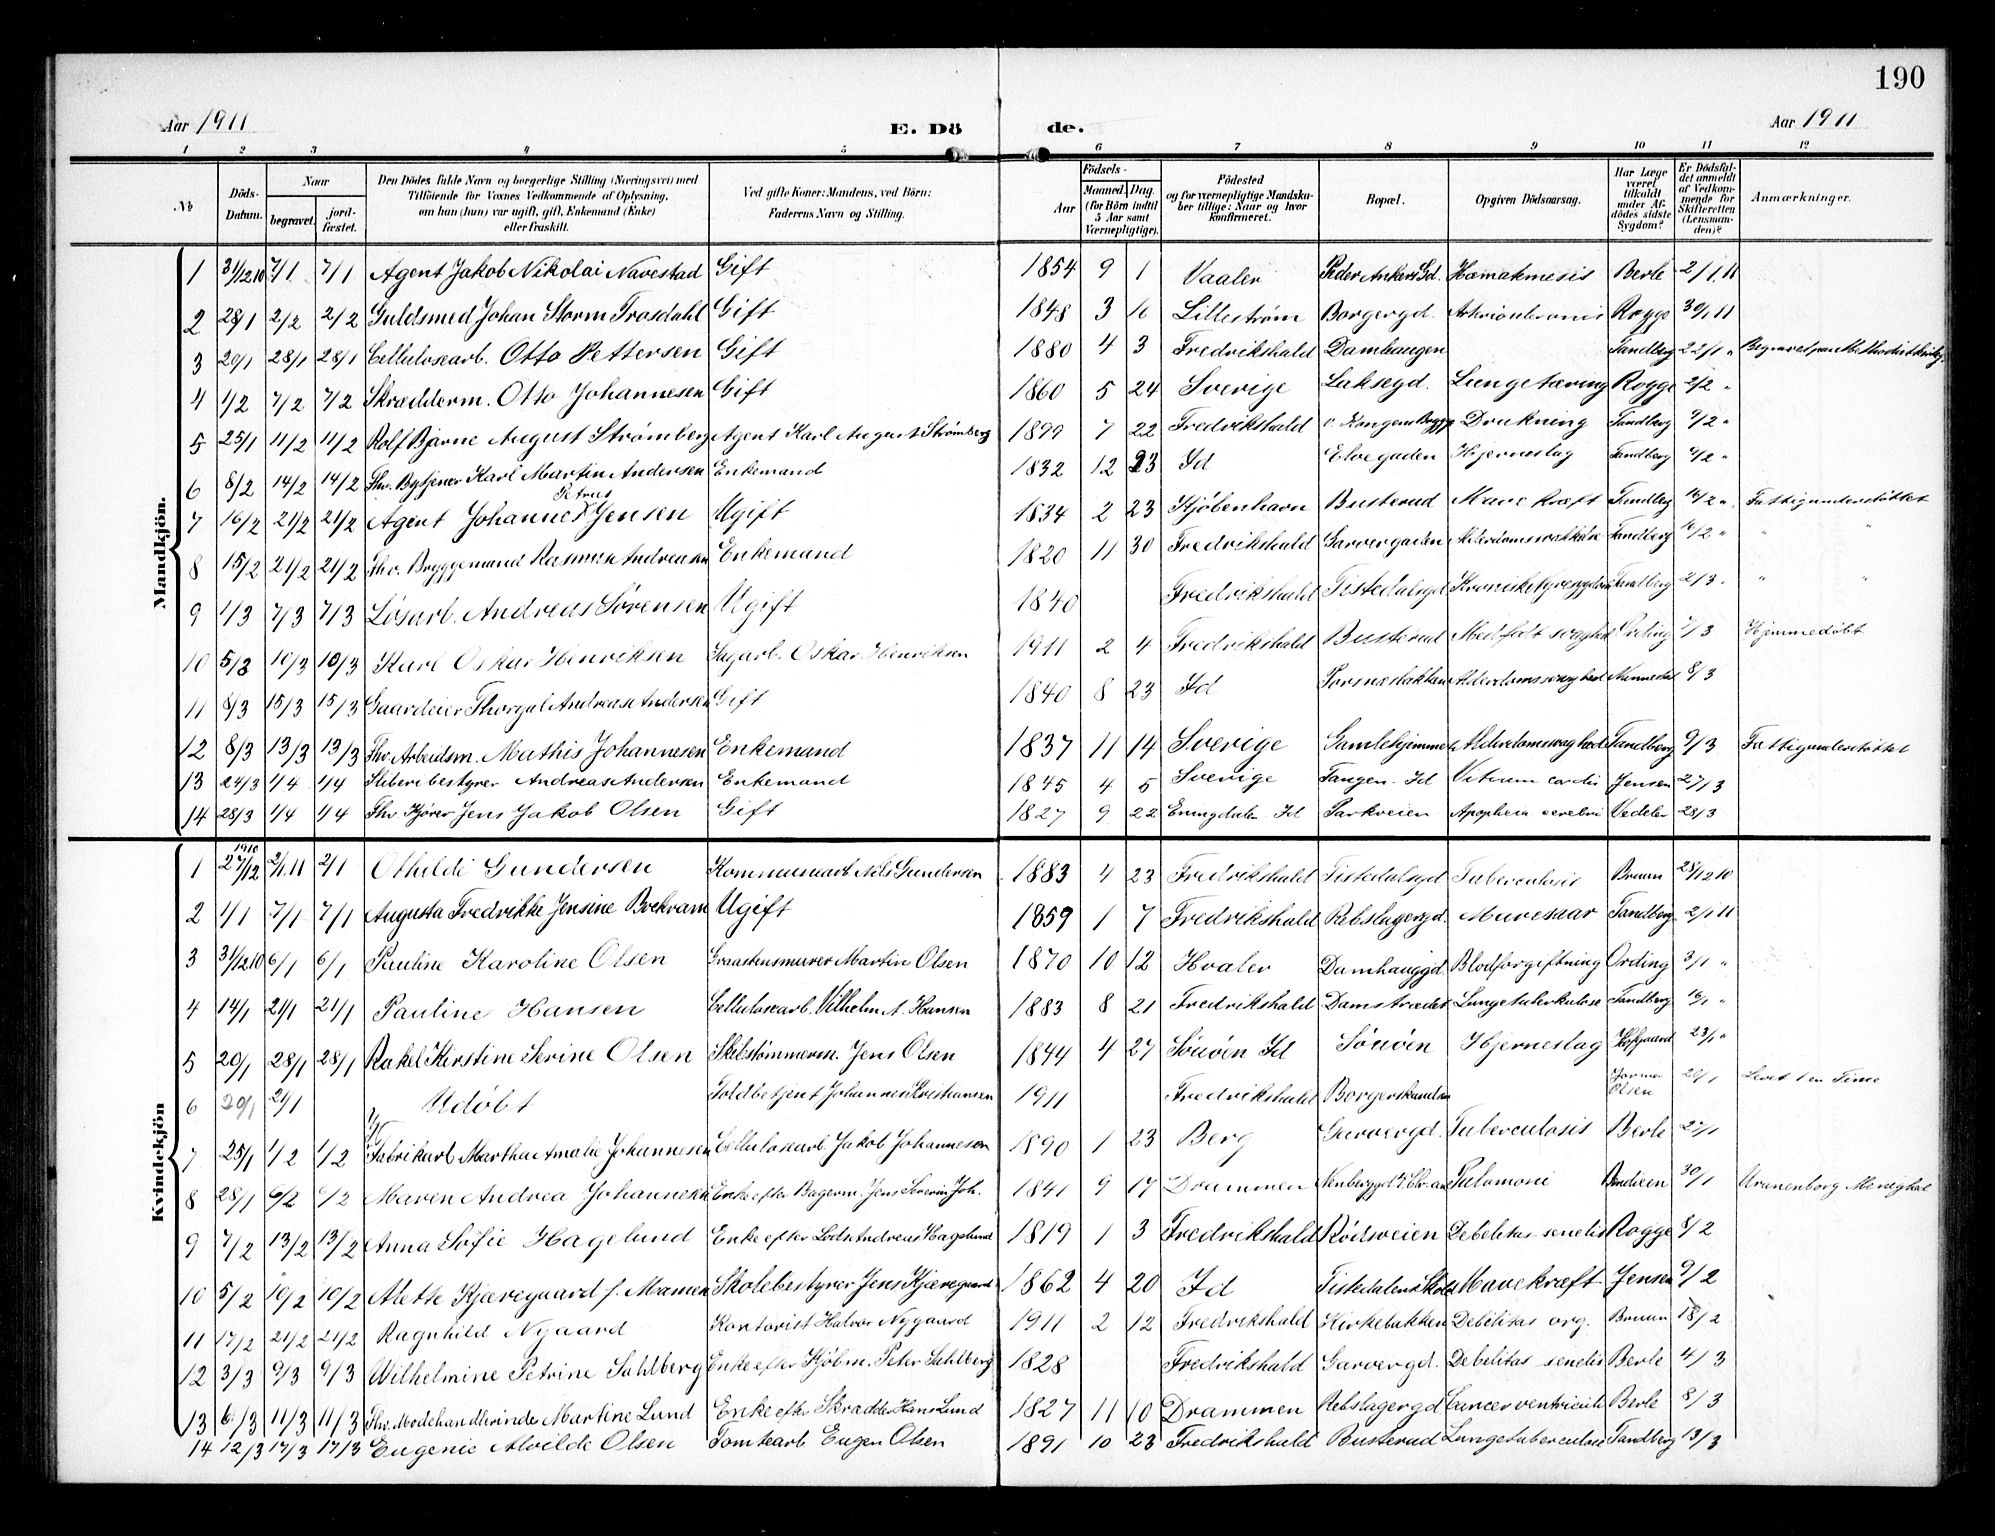 190
Aar 1911 E. Dö de. Aar 1911
1 2 3 4 5 6 7 8 9 10 11 12
№ Döds-Datum. Naar begravet. jordfæstet. Den Dödes fulde Navn og borgerlige Stilling (Næringsvei) med Tilföiende for Voxnes Vedkommende af Oplysning, om han (hun) var ugift, gift, Enkemand (Enke) eller fraskilt. Ved gifte Koner: Mandens, ved Börn: Faderens Navn og Stilling. Födsels- Aar Maaned. Dag. (for Börn indtil 5 Aar samt Værnepligtige). Födested og for værnepligtige Mandskaber tillige: Naar og hvor konfirmeret. Bopæl. Opgiven Dödsaarsag. Har Læge været tilkaldt under Afdödes sidste Sygdom? Er Dödsfaldet anmeldt af Vedkommende for Skifteretten (Lensmanden)? Anmærkninger.
Mandkjön.
1 31/12 10 7/1 7/1 Agent Jakob Nikolai Navestad Gift 1854 9 1 Vaaler Peder Ankers Gd. Hæmatmesis Berle 2/1 11
2 28/1 2/2 2/2 Guldsmed Johan Storm Trosdahl Gift 1848 3 16 Lillestrøm Borgergd. Rogge 30/1 11
3 20/1 28/1 28/1 Cellulosearb. Otto Pettersen Gift 1880 4 3 Fredrikshald Damhaugen Tandberg 22/1 "
4 1/2 7/2 7/2 Skrædderm. Otto Johannesen Gift 1860 5 24 Sverige Laksegd. Lungetæring Rogge 2/2 "
5 25/1 11/2 11/2 Rolf Bjarne August Strømberg Agent Karl August Strømberg 1899 7 22 Fredrikshald v. Kongens Brygge Drukning Tandberg 9/2 "
6 8/2 14/2 14/2 Fhv. Bytjener Karl Martin Andersen Enkemand 1832 12 23 Id Elvegaden Hjerneslag Tandberg 9/2 "
7 16/2 21/2 21/2 Agent Johannes Petrus Jensen Ugift 1834 2 23 Kjøbenhavn Busterud Mavekræft Tandberg 16/2 " Fattigunderstøttet
8 15/2 21/2 21/2 Fhv. Bryggemand Rasmus Andreasen Enkemand 1820 11 30 Fredrikshald Garvergaden Alderdomssvakhet Tandberg 16/2 " " "
9 1/3 7/3 7/3 Løsarb. Andreas Sørensen Ugift 1840 Fredrikshald Tistedalsgd Kronisk Nyresygdom Tandberg 2/3 " " "
10 5/3 10/3 10/3 Karl Oskar Henriksen Sagarb. Oskar Henriksen 1911 2 4 Fredrikshald Busterud Medfødt svaghed Ording 7/3 Hjemmedøbt
11 8/3 15/3 15/3 Gaardeier Thorgal Andreas Andersen Gift 1840 8 23 Id Alderdomssvaghed 8/3
12 8/3 13/3 13/3 Fhv. Arbeidsm. Mathis Johannesen Enkemand 1837 11 14 Sverige Gamlehjemmet Alderdomssvaghed Tandberg 9/3 Fattigunderstøttet
13 24/3 1/4 1/4 Sliberibestyrer Andreas Andersen Enkemand 1845 4 5 Sverige Tangen. Id Vitium cordis Jensen 27/3
14 28/3 1/4 1/4 Fhv. Kjører Jens Jakob Olsen Gift 1827 9 22 Enningdalen Id Parkveien Apoplexia cerebri Vedeler 28/3
Kvindekjön
1 1910 27/12 2/1 11 2/1 Othilde Gundersen Kommunearb Nils Gundersen 1883 4 23 Fredrikshald Tistedalsgd Tuberculosis Bruun 28/12 10
2 1/1 7/1 7/1 Augusta Fredrikke Jensine Ugift 1859 1 7 Fredrikshald Rebslagergd. Mavesaar Tandberg 2/1 11
3 31/12 10 6/1 6/1 Pauline Karoline Olsen Graastensmurer Martin Olsen 1870 10 12 Hvaler Damhauggd. Blodforgiftning Ording 3/1 "
4 14/1 21/1 21/1 Pauline Hansen Cellulosearb. Vilhelm A. Hansen 1883 8 21 Fredrikshald Damstrædet Lungetuberkulose Tandberg 16/1 "
5 20/1 28/1 28/1 Rakel Kirstine Serine Olsen Skibstømmerm. Jens Olsen 1844 4 27 Id Hjerneslag Hofgaard 23/1 "
6 20/1 21/1 Udøbt Toldbetjent Johannes Kristiansen 1911 Fredrikshald Jormor Olsen 20/1 Levet 1 en Time
7 25/1 1/2 1/2 Fabrikarb. Martha Amalie Johannesen Cellulosearb. Jakob Johannesen 1890 1 23 Berg Garvergd. Tuberculosis Berle 27/1
8 28/1 6/2 6/2 Maren Andrea Johannesen Enke efter Bagerm. Jens Severin Joh. 1841 9 17 Drammen 30/1 Uranenborg Menighed
9 7/2 13/2 13/2 Anna Sofie Hagelund Enke efter Lods Andreas Hagelund 1819 1 3 Fredrikshald Rødsveien Debelitas senelis Rogge 8/2
10 5/2 10/2 10/2 Alette Kjæregaard f. Momen Skolebestyrer Jens Kjæregaard 1862 4 20 Id Tistedalens Skole Mavekræft Jensen 9/2
11 17/2 21/2 21/2 Ragnhild Nygaard Kontorist Halvor Nygaard 1911 2 12 Fredrikshald Kirkebakken Debilitas org. Bruun 18/2
12 3/3 9/3 9/3 Wilhelmine Petrine Sahlberg Enke efter Kjøbm. Peter Sahlberg 1828 Fredrikshald Garvergd. Debelitas senelis Berle 4/3
13 6/3 11/3 11/3 Fhv. Modehandlerinde Martine Lund Enke efter Skrædder Hans Lund 1827 11 10 Drammen Rebslagergd Cancer ventriculi Berle 8/3
14 12/3 17/3 17/3 Eugenie Alvilde Olsen Tomtearb Eugen Olsen 1891 10 23 Fredrikshald Busterud Lungetuberculose Tandberg 13/3